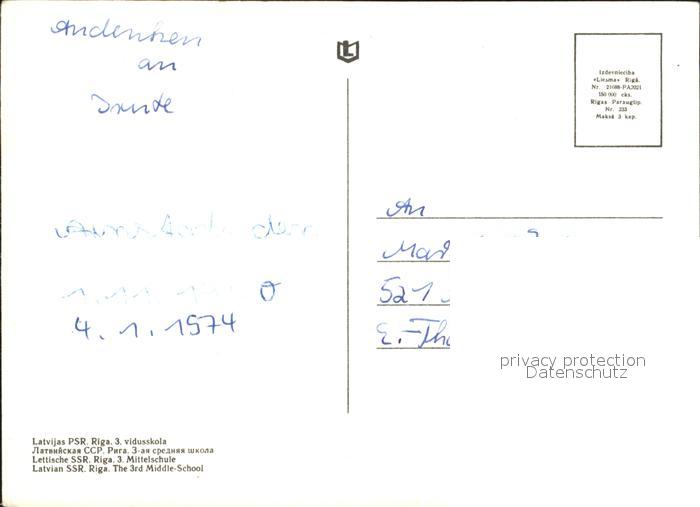 Andenken
an
Izdevniecība
«Liesma» Rīgā.
Nr. 21088-PA2021
150 000 eks.
Rīgas Paraugtip.
Nr. 233
Maksā 3 kap.
An
521
E.-Th
den
4. 1. 1974
privacy protection
Datenschutz
Latvijas PSR. Rīga. 3. vidusskola
Латвийская ССР. Рига. 3-ая средняя школа
Lettische SSR. Riga. 3. Mittelschule
Latvian SSR. Riga. The 3rd Middle-School